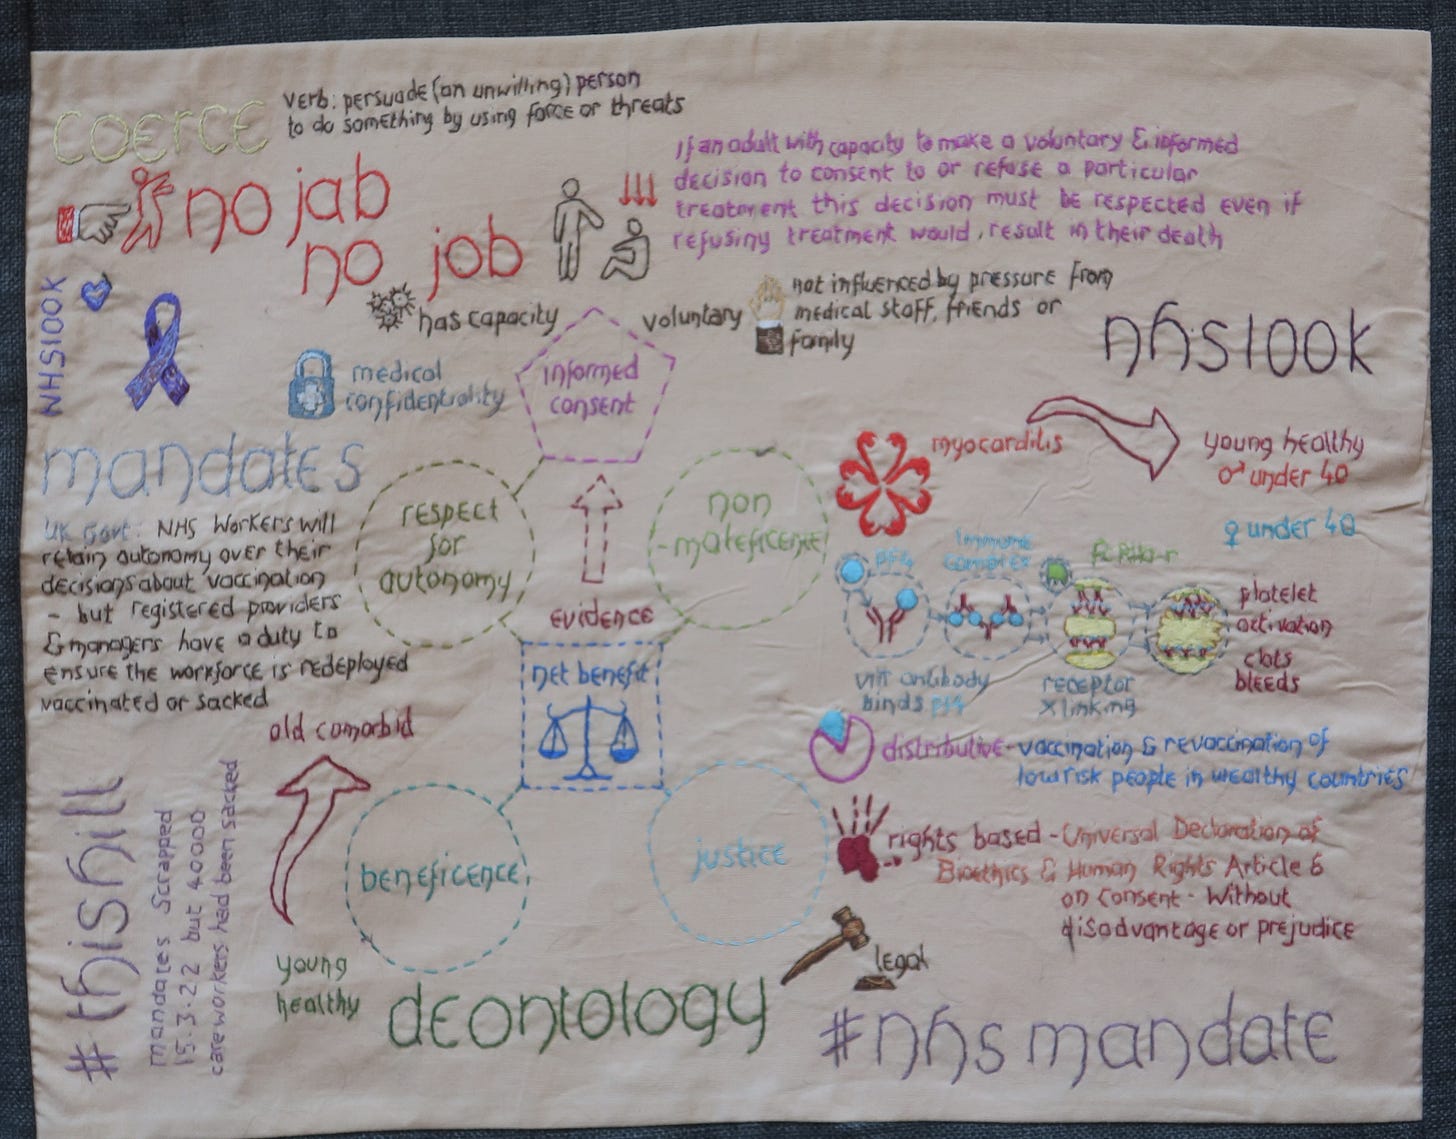 coerce
verb: persuade (an unwilling) person
to do something by using force or threats
no jab
no job
If an adult with capacity to make a voluntary & informed
decision to consent to or refuse a particular
treatment this decision must be respected even if
refusing treatment would result in their death
NHS100K
has capacity
voluntary
not influenced by pressure from
medical staff, friends or
family
nhs100k
medical
confidentiality
informed
consent
mandates
UK Govt: NHS Workers will
retain autonomy over their
decisions about vaccination
- but registered providers
& managers have a duty to
ensure the workforce is redeployed
vaccinated or sacked
respect
for
autonomy
non
-maleficence
evidence
net benefit
myocarditis
young healthy
♂ under 40
♀ under 40
PF4
immune
complex
receptor
x linking
platelet
activation
clots
bleeds
vitt antibody
binds pf4
distributive - vaccination & revaccination of
low risk people in wealthy countries
rights based - Universal Declaration of
Bioethics & Human Rights Article 6
on consent - Without
disadvantage or prejudice
old comorbid
beneficence
justice
young
healthy
legal
deontology
#nhs mandate
#thishill
mandates scrapped
15.3.22 but 40000
careworkers had been sacked